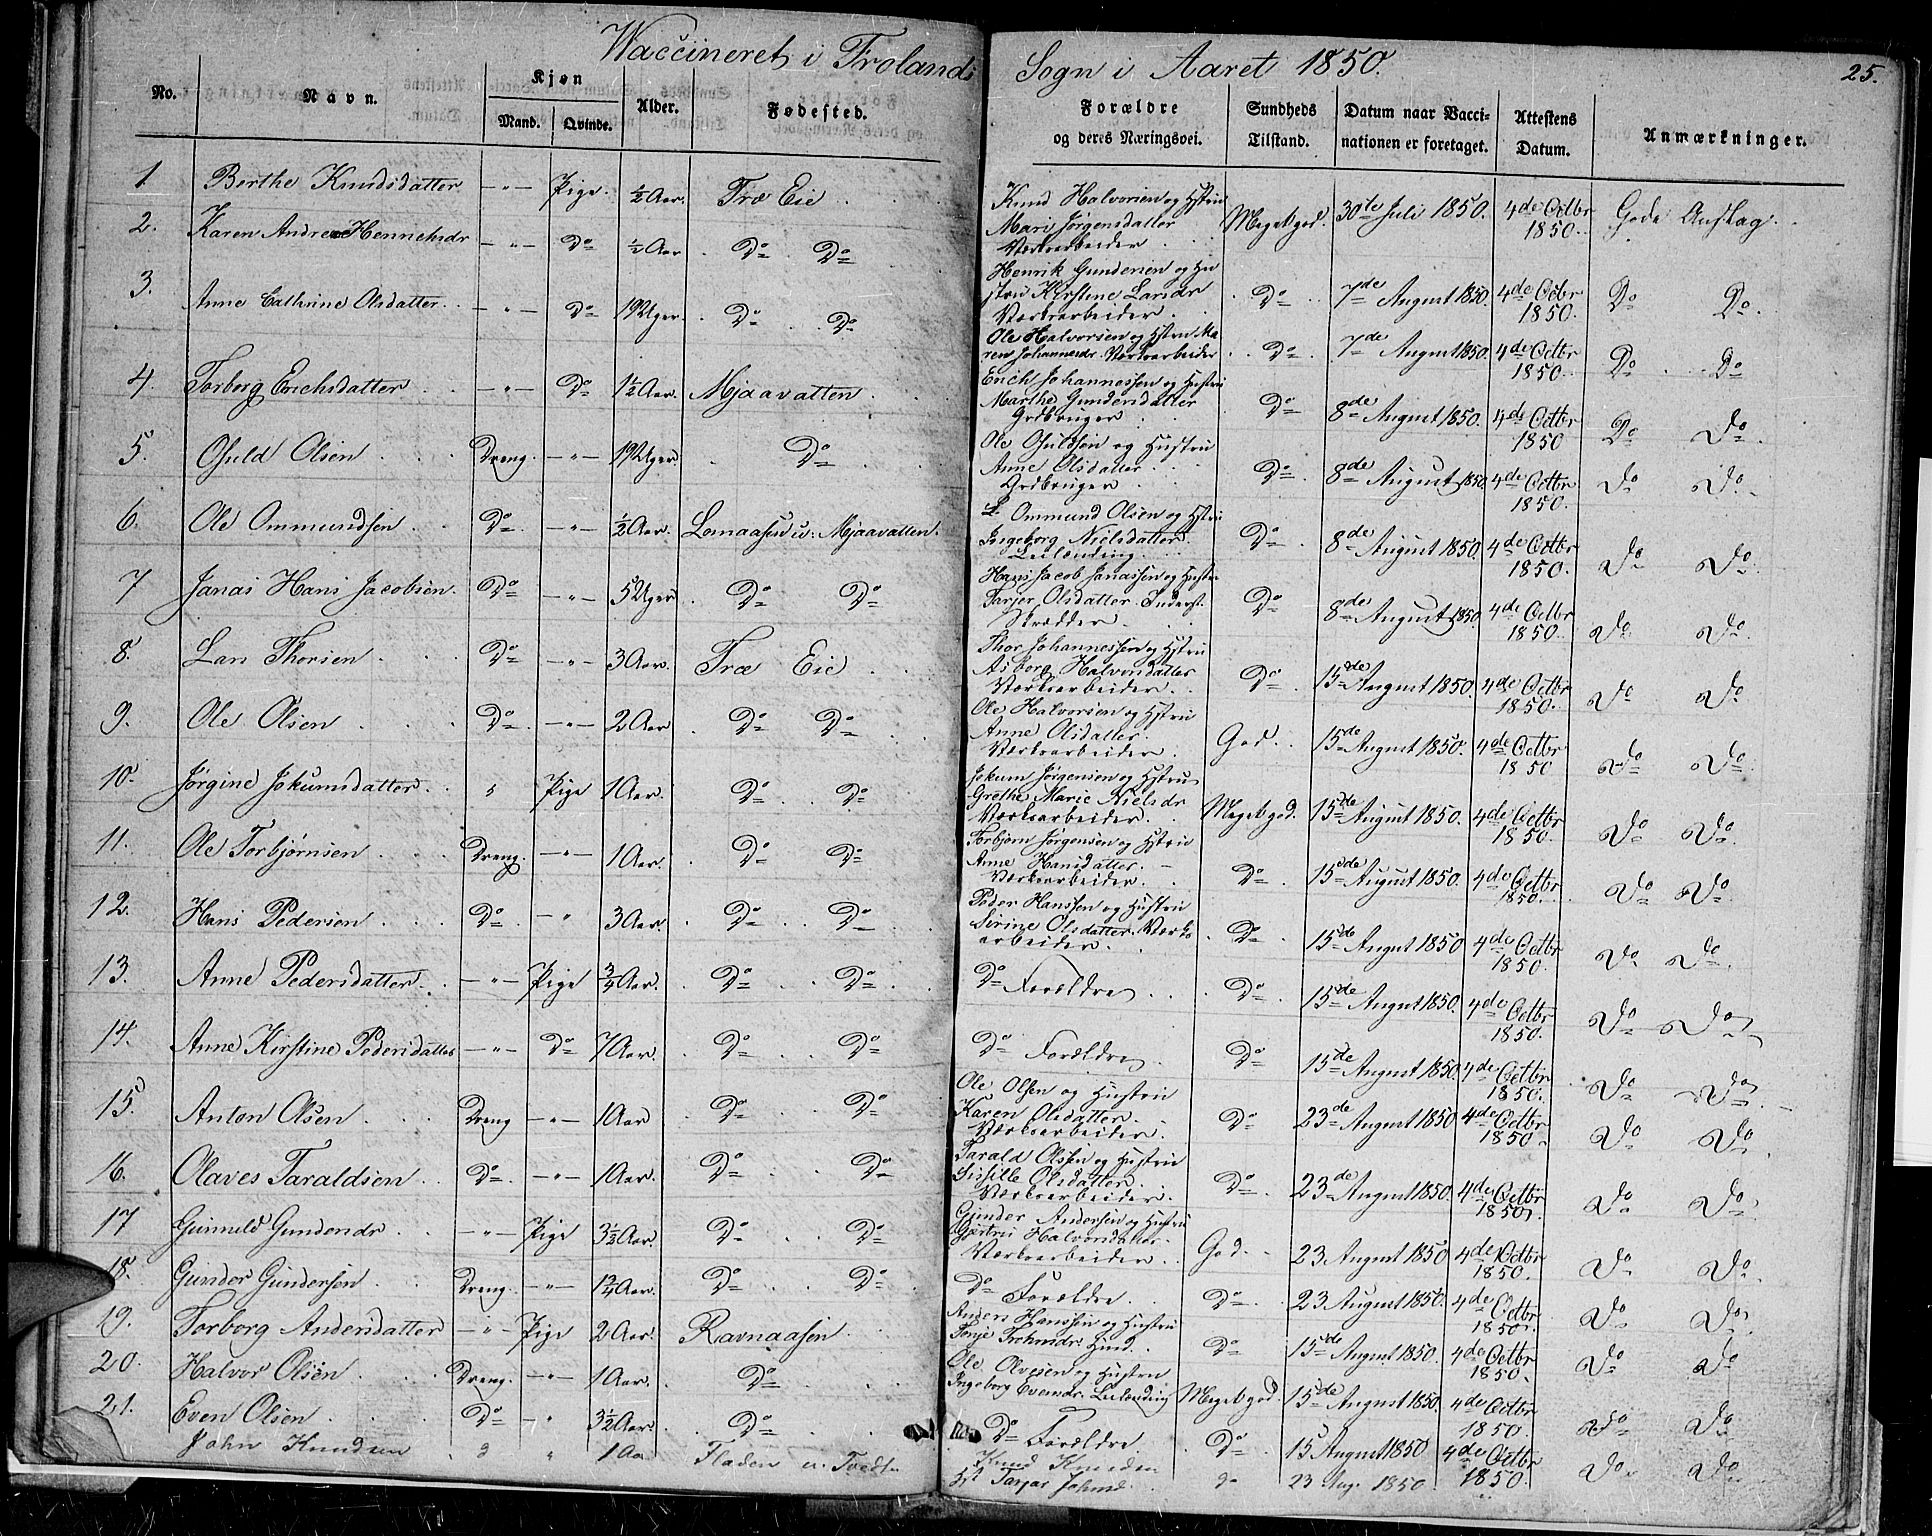 Waccineret i Frolands Sogn i Aaret 1850.
25.
No. Navn. Kjøn Mand. Qvinde. Alder. Fødested. Forældre og deres Næringsvei. Sundheds Tilstand. Datum naar Vaccinationen er foretaget. Attestens Datum. Anmærkninger.
1. Berthe Knudsdatter —"— Pige. ½ Aar. Træ Eie Knud Halvorsen og Hstru Mari Jørgensdatter Værksarbeider Meget god. 30te Juli 1850. 4de Octbr 1850. Gode Anslag.
2. Karen Andrea Henrichsdr —"— Do ½ Aar Do Do Henrik Gundersen og Hustru Kirstene Larsdr Værksarbeider. Do 7de August 1850. 4de Octbr 1850. Do Do.
3. Anne Cathrine Olsdatter —"— Do 19 Uger. Do Do Ole Halvorsen og Hstru Maren Johannesdr. Værksarbeider Do 7de August 1850. 4de Octbr 1850. Do Do
4. Torborg Erichsdatter —"— Do 1½ Aar. Mjaavatten Erich Johannessen og Hustru Marthe Gundersdatter Grdbruger Do 8de August 1850. 4de Octbr 1850 Do Do
5. Osuld Olsen Dreng. —"— 19 Uger. Do Ole Osuldsen og Hustru Anne Olsdatter Grdbruger Do 8de August 1850. 4de Octbr 1850. Do Do
6. Ole Ommundsen Do —"— ½ Aar. Lomaasen u. Mjaavatten. Ommund Olsen og Hstru Ingeborg Nielsdatter Leilænding. Do 8de August 1850. 4de Octbr 1850. Do Do
7 Janas Hans Jacobsen Do —"— 5 Uger Do Do Hans Jacob Janassen og Hustru Tarjer Olsdatter Inderst. Skrædder Do 8de August 1850. 4de Octbr 1850. Do Do
8. Lars Thorsen Do —"— 3 Aar. Træ Eie Thor Johannessen og Hstru Asborg Halvorsdatter Værksarbeider Do 15de August 1850. 4de Octbr 1850. Do Do
9. Ole Olsen Do —"— 2 Aar Do Do Ole Halvorsen og Hstru Anne Olsdatter. Værksarbeider God. 15de August 1850. 4de Octbr 1850 Do Do
10. Jørgine Jokumsdatter " Pige 1 Aar. Do Do Jokum Jørgensen og Hstru Grethe Marie Nielsdr Værksarbeider Meget god. 15de August 1850. 4de Octbr 1850. Do Do
11. Ole Torbjørnsen Dreng. —"— 1 Aar. Do Do Torbjørn Jørgensen og Hstru Anne Hansdatter. Værksarbeider. Do 15de August 1850. 4de Octbr 1850. Do Do
12. Hans Pedersen Do —" 3 Aar. Do Do Peder Hanssen og Hustru Sirine Olsdatter. Værksarbeider. Do 15de August 1850 4de Octbr 1850. Do Do
13. Anne Pedersdatter —"— Pige ¾ Aar. Do Do Do Forældre Do 15de August 1850. 4de Octbr 1850. Do Do
14. Anne Kirstine Pedersdatter —"— Do 7 Aar. Do Do Do Forældre Do 15de August 1850. 4de Octbr 1850. Do Do
15. Anton Olsen Dreng —"— 1 Aar Do Do Ole Olsen og Hustru Karen Olsdatter. Værksarbeider. Do 23de August 1850 4de Octbr 1850. Do Do
16. Olaves Taraldsen Do —"— 1 Aar. Do Do Tarald Olssen og Hustru Sissille Olsdatter. Værksarbeider. Do 23de August 1850. 4de Octbr 1850. Do Do
17 Gunnuld Gundersdr —"— Pige 3½ Aar. Do Do Gunder Andersen og Hustru Gjertru Halvorsdatter Værksarbeider God. 23 August 1850 4de Octbr 1850. Do Do
18. Gunder Gundersen Dreng. —"— 1¾ Aar. Do Do Do Forældre. Do 23 August 1850. 4de Octbr 1850. Do Do
19. Torborg Andersdatter —"— Pige 2 Aar. Ravnaasen Anders Hanssen og Hustru Do 15de August 1850. 4de Octbr 1850. Do Do
20. Halvor Olsen Dreng. —"— 1 Aar. Do Ole Olvesen og Hustru Ingeborg Evensdr. Leilænding Meget god. 15de August 1850. 4de Octbr 1850. Do Do
21. Even Olsen Do " 3½ Aar. Do Do Forældre. Do 15 August 1850 4de Octbr 1850. Do Do
John Knudsen " 1 Aar Fladen u. Tvedt Knud Knudsen Hst Tarjer Johnsd. do 23 Aug. 1850